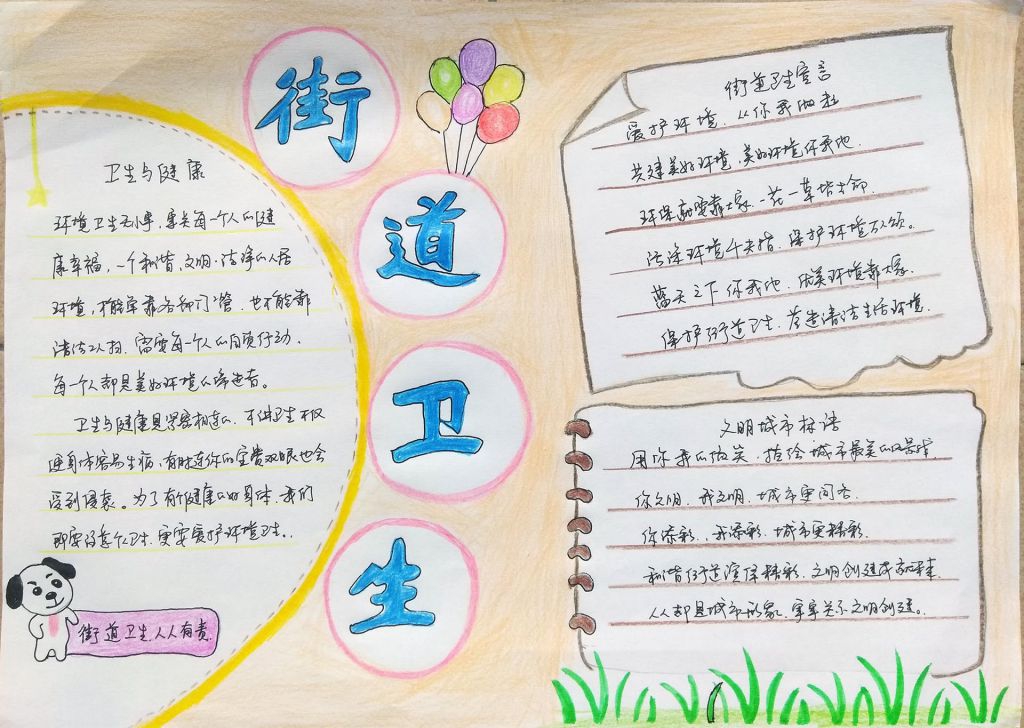 街道卫生
卫生与健康
环境卫生无小事，事关每一个人的健
康幸福，一个和谐、文明、洁净的人居
环境，不能单靠各部门管，也不能靠
清洁工人扫，需要每一个人的自觉行动，
每一个人都是美好环境的缔造者。
卫生与健康是紧密相连的，不讲卫生不仅
使身体容易生病，有时连你的宝贵双眼也会
受到侵袭。为了有个健康的身体，我们
即要讲究个卫生，更要爱护环境卫生。
街道卫生人人有责
街道卫生宣言
爱护环境，从你我做起
共建美好环境，美好环境伴我你
环保就要靠大家，一花一草皆生命
洁净环境千夫指，保护环境万人颂。
蓝天之下你我他，优美环境靠大家
保护街道卫生，营造清洁生活环境
文明城市标语
用你我的微笑，描绘城市最美的风景线
你文明，我文明，城市更闻名
你添彩，我添彩，城市更精彩
和谐街道演绎精彩，文明创建成就未来
人人都是城市形象，事事关系文明创建。